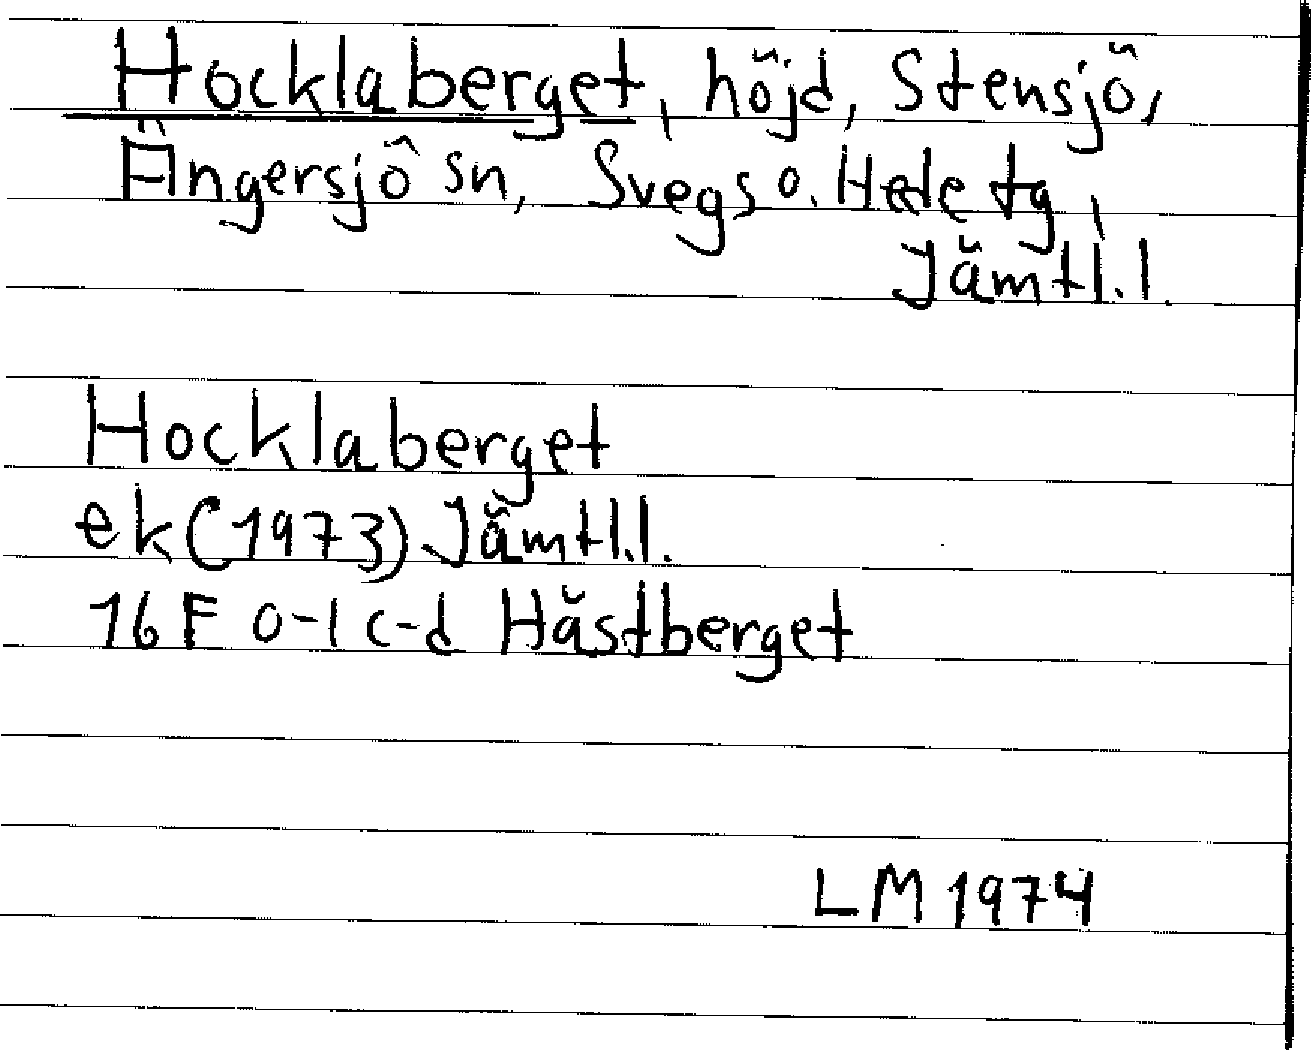 Hocklaberget, höjd, Stensjö,
Ängersjö sn, Svegs o. Hede tg,
Jämtl.l.
Hocklaberget
ek (1973) Jämtl.l.
16 F 0-1 c-d Hästberget
LM 1974